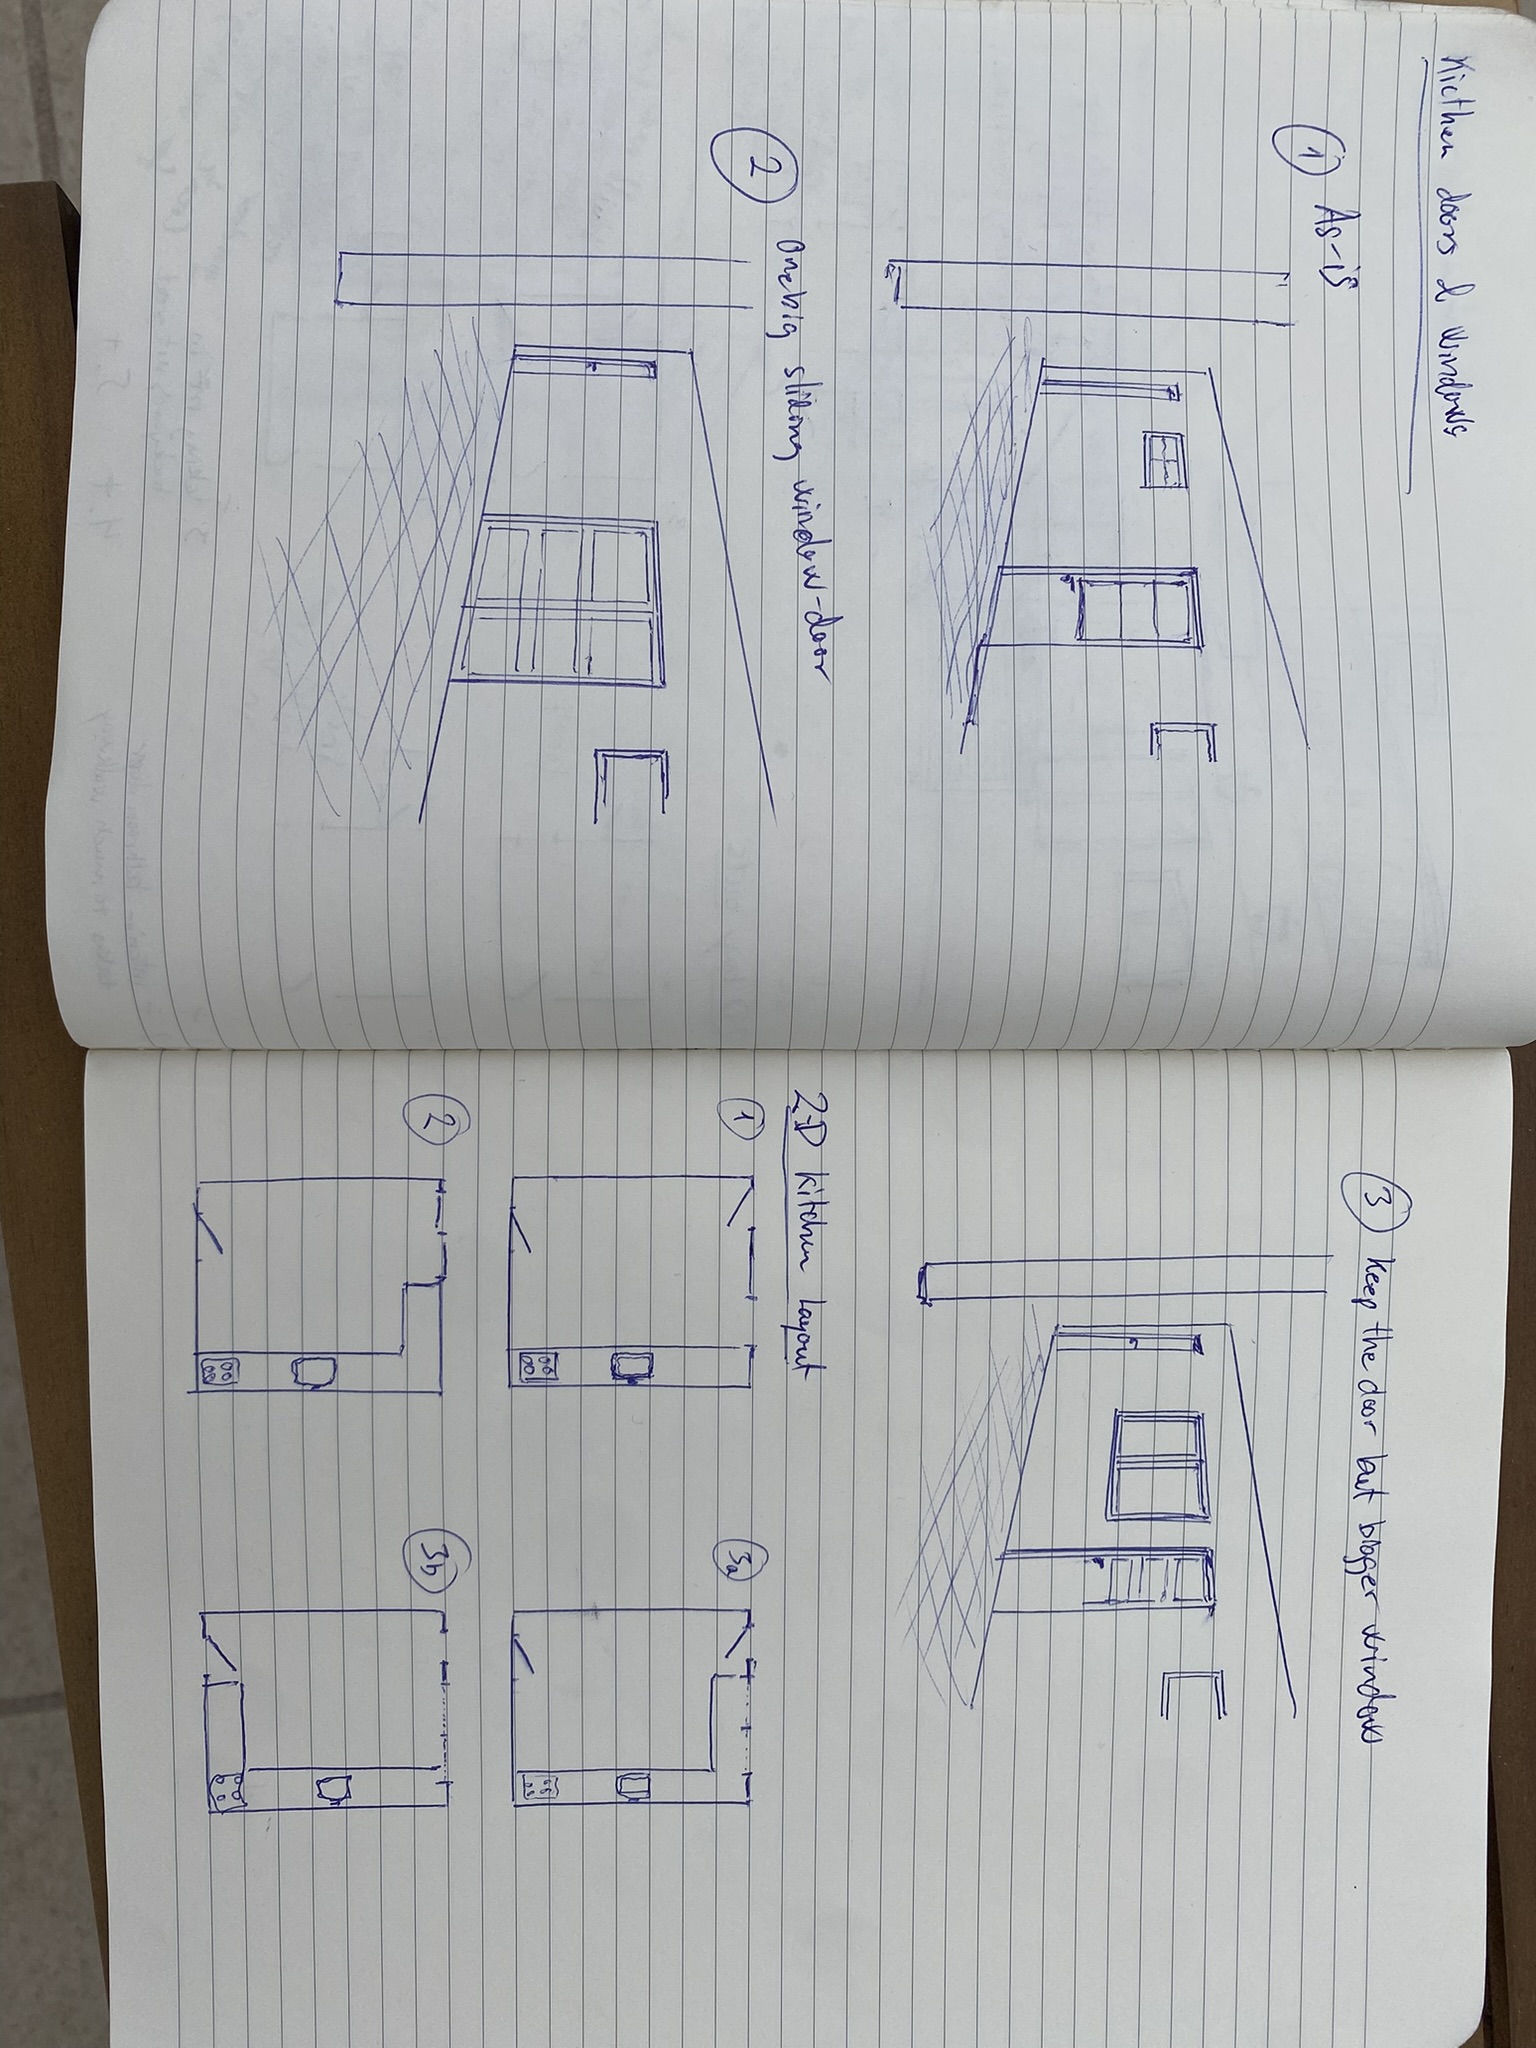 Kicthen doors & windows
1 As-is
2 One big sliding window-door
3 keep the door but bigger window
2-D kitchen layout
1
3a
2
3b